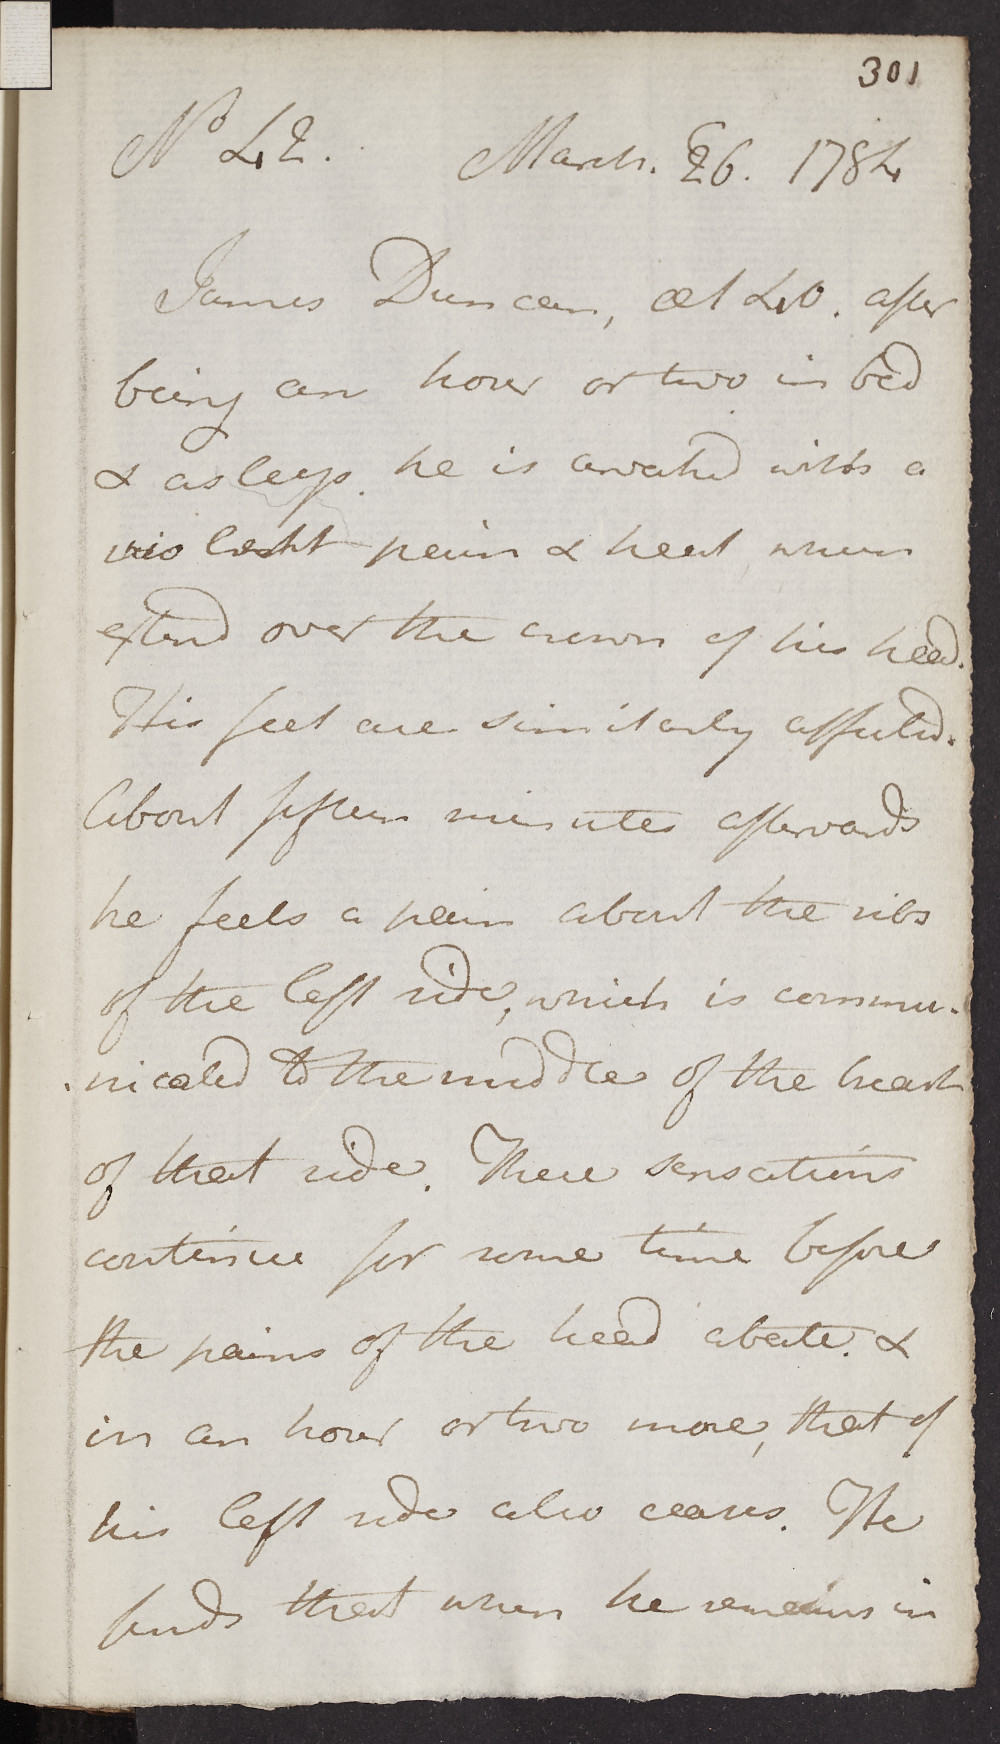 301
No 42. March. 26. 1784
James Duncan, æt 40. after
being an hour or two in bed
& asleep. he is awaked with a
violent pain & heat, when
extend over the crown of his head.
His feet are similarly affected.
About fifteen minutes afterwards
he feels a pain about the ribs
of the left side, which is commu-
-nicated to the middle of the heart
of that side. These sensations
continue for some time before
the pains of the head abate. &
in an hour or two more, that of
his left side also ceases. He
finds that when he remains in